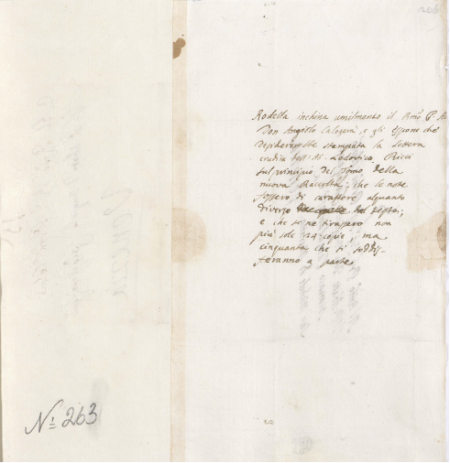 Rodella inchina umilmente il Rmo P. A.
Don Angelo Calogerà, e gli espone che
desidererebbe stampata la Lettera
del Sr. Lodovico Ricci
sul principio del tomo della
nuova Raccolta; che le note
fossero di carattere alquanto
diverso del
e che se ne tirassero non
più sole copie, ma
cinquanta, che si soddis-
feranno a parte
No. 263